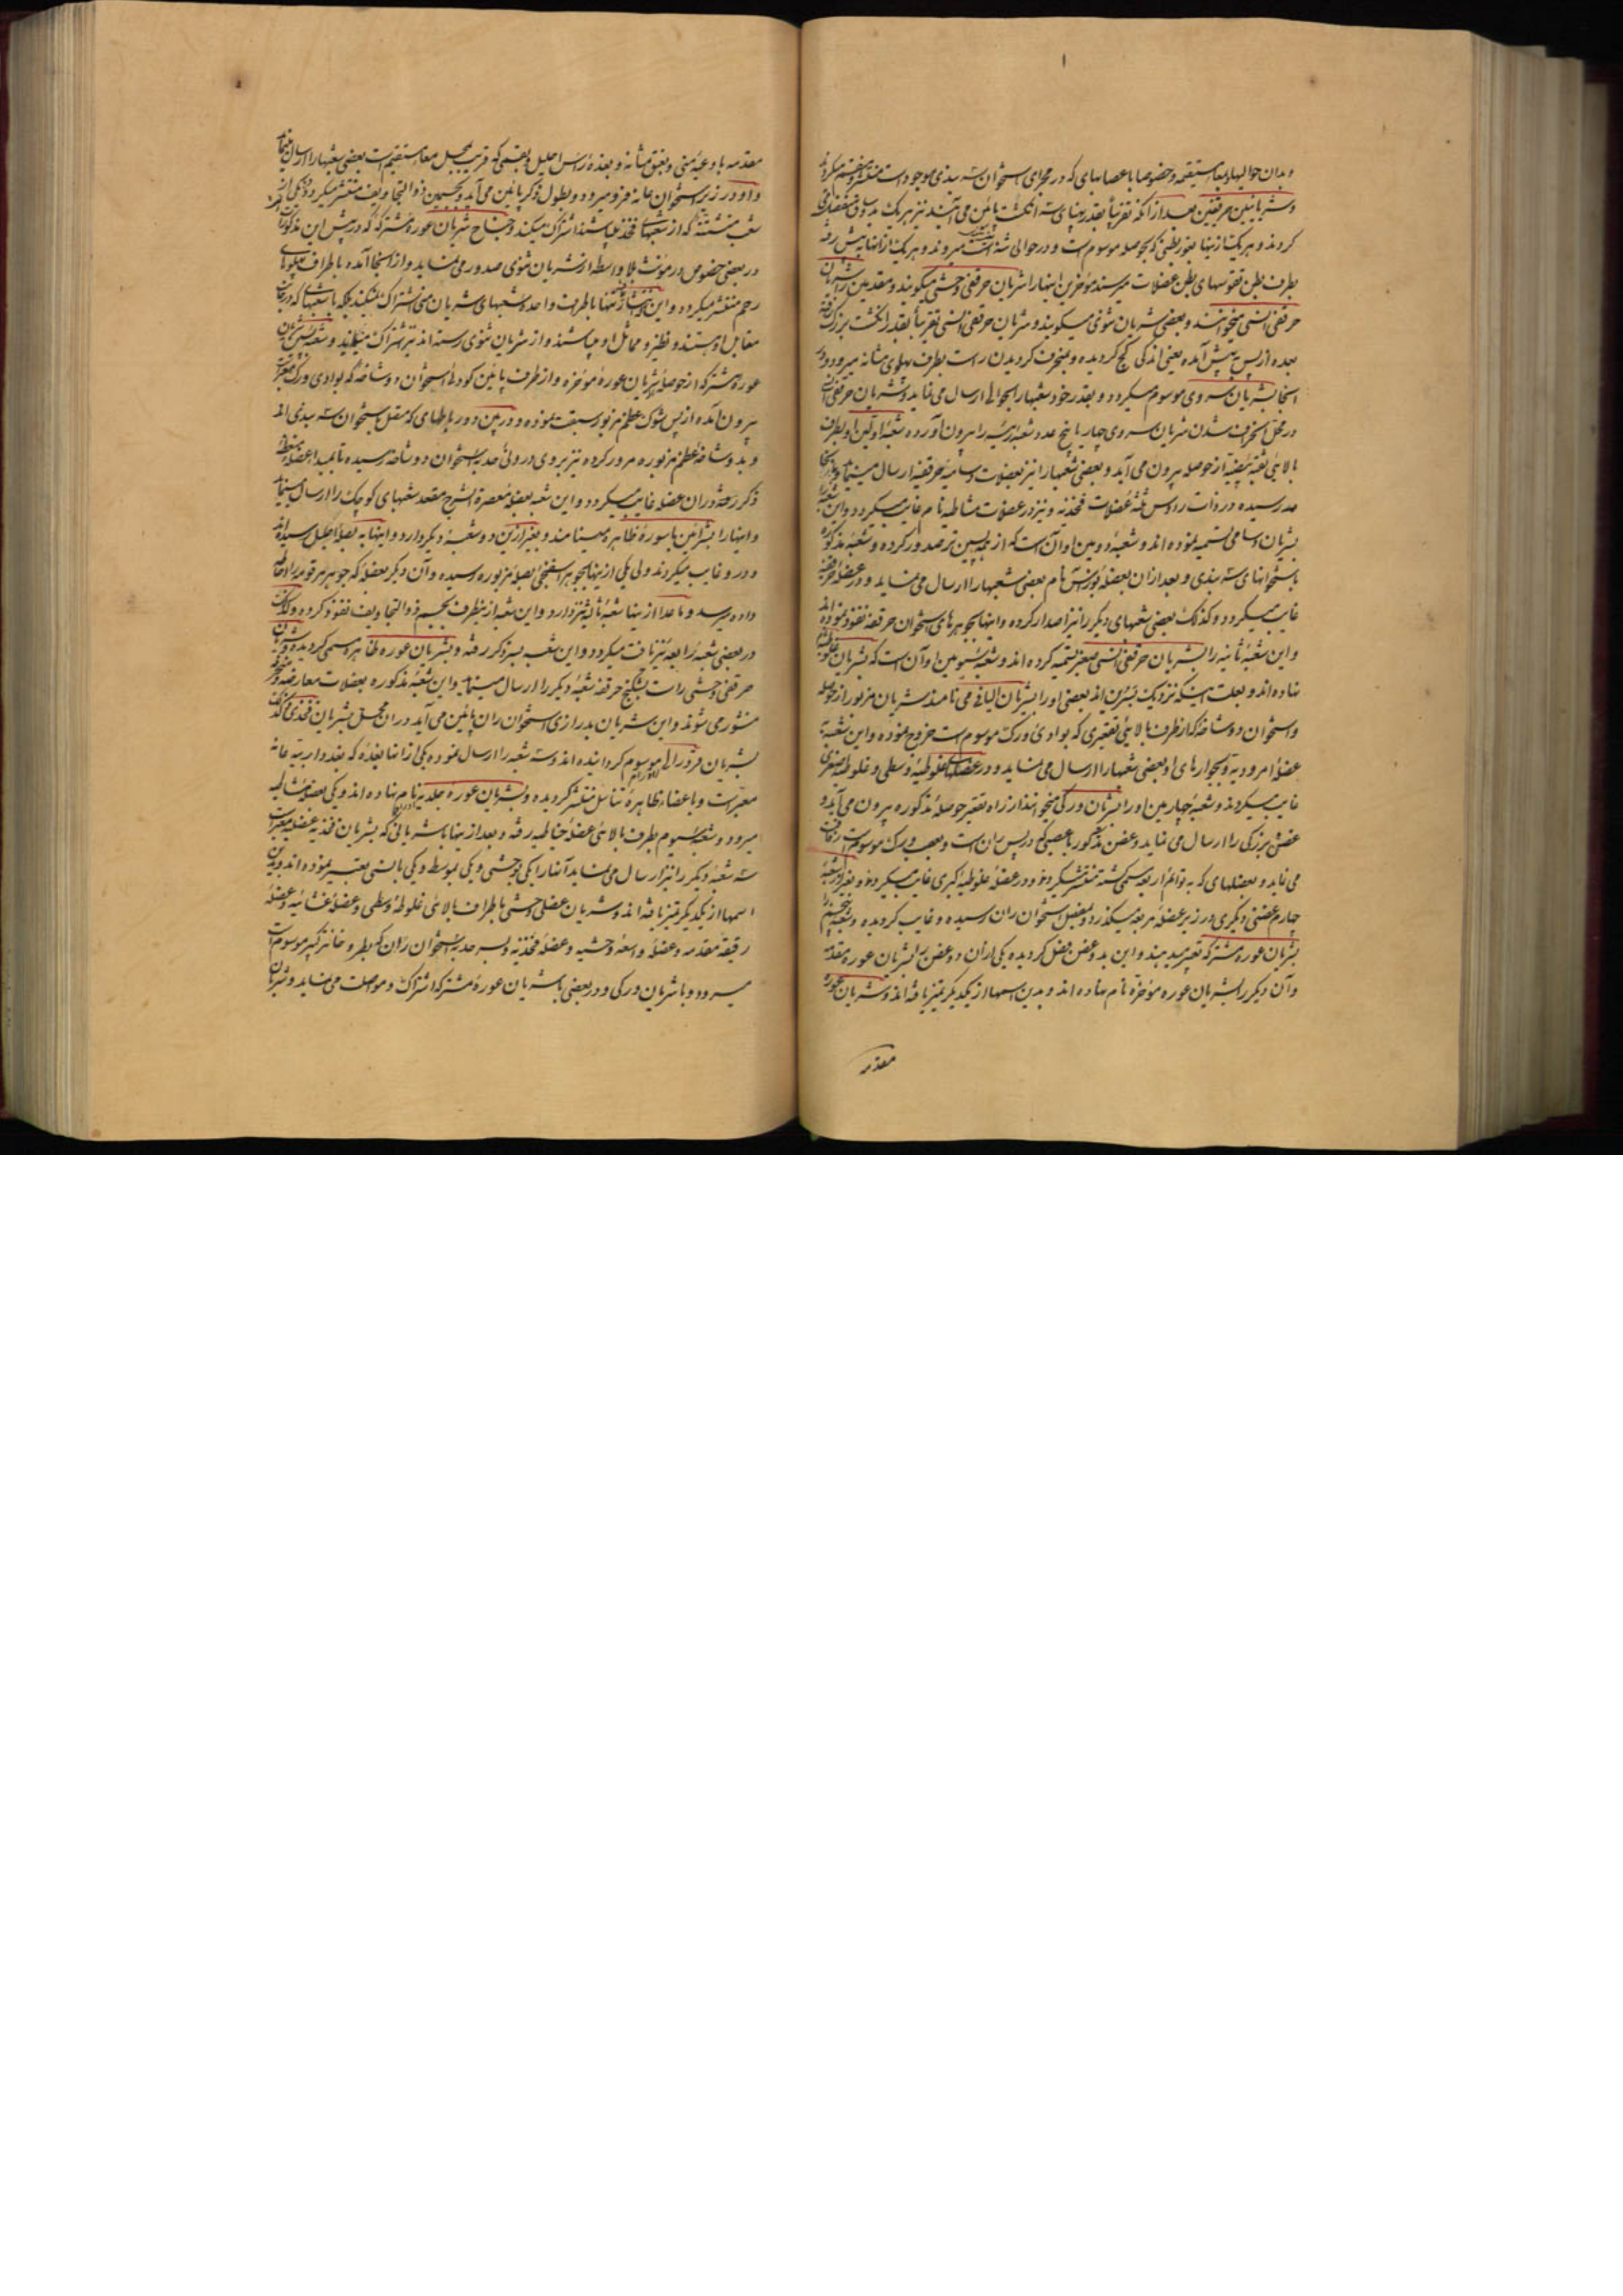 و بدان حوالیها و بمعاء مستقیمه و خصوصا باعصابهای که در مجرای استخوان سه بندی موجود است منتشر و منقسم میکردند
و شریانین حرقفیین بعد از آنکه تقریبا بقدر پهنای سه انکشت پائین می آیند نیز هر یک بدو ساق منقسم
کردند و هر یک از اینها بغور بطنی که بحوصله موسوم است و در حوالی میروند و هر یک از آنها به پیش رفته
بطرف بطن تقوسهای بطن عضلات میرسند مؤخرین اینها را شریان حرقفی وحشی میکویند و مقدمین را شریان
حرقفی انسی میخوانند و بعضی شریان مثونی میکویند و شریان حرقفی انسی تقریبا بقدر انکشت بزرک رفته
بعده از پس به پیش آمده یعنی اندکی کج کردیده و منحرف کردیدن راست بطرف پهلوی مثانه میرود و در
اینجا بشریان سروی موسوم میکردد و بقدر خود شعبها را بحوالی ارسال می نماید و شریان حرقفی
در محل منحرف شدن شریان سروی چهار یا پنج عدد شعبه رئیسه را بیرون آورده شعبه اولین او بطرف
بالایی از حوصله بیرون می آید و بعضی شعبها را نیز بعضلات حرقفیه ارسال مینماید
رسیده در ذات رؤس ثلثه عضلات فخذیه و نیز در عضلات مشاطیه نام غایب میکردد و این شعبه
بشریان تسمیه نموده اند و شعبه دومین او آن است که از همه پسین تر صدور کرده و شعبه مذکوره
باستخوانهای سه بندی و بعد از آن بعضله نام بعضی شعبها را ارسال می نماید و در عضله حرقفیه
غایب میکردد و کذلک بعضی شعبهای دیکر را نیز اصدار کرده و اینها بجوهرهای استخوان حرقفه نفوذ نموده اند
و این شعبه ثانیه را بشریان حرقفی انسی صغیر تسمیه کرده اند و شعبه سیومین او آن است که بشریان غلوطیه
نهاده اند و بعلت اینکه نزدیک بسرین اند بعضی او را بشریان الیانی می نامند شریان مزبور از حوصله
و استخوان دوشاخه که از طرف بالایی تقعیری که بوادی ورک موسوم است خروج نموده و این شعبه
عضله امرودیه و بجوارهای او بعضی شعبها را ارسال می نماید و در عضلهای غلوطیه وسطی و غلوطیه صغری
غایب میکردند و شعبه چهارمین او را بشریان ورکی میخوانند از راه تقعیر حوصله مذکوره بیرون می آید و
غصنی بزرکی را ارسال می نماید و غصن مذکور با عصبی که در پس ران است و بعصب ورک موسوم است رفاقت
می نماید و بعضلهای که به توأم اربعه مسمی شده منتشر میکردد و در عضله غلوطیه کبری غایب میکردد و بغیر از شعبه
چهارم غصنی دیکری در زیر عضله مربعه میکذرد و بمفصل استخوان ران رسیده و غایب کردیده و شعبه پنجم
بشریان عوره مشترکه تعبیر میدهند و این بدو غصن بفصل کردیده یکی از آن دو غصن را بشریان عوره مقدمه
و آن دیکر را بشریان عوره مؤخره نام نهاده اند و بدین اسمها از یکدیکر تمیز یافته اند و شریان عوره
مقدمه
مقدمه باوعیه منی و بعنق مثانه و بغده رأس احلیل و بقسمی که قریب بمحل معاء مستقیم است بعضی شعبها را ارسال مینماید
و او در زیر استخوان عانه فرو میرود و بطول ذکر پائین می آید و بجسمین ذو التجاویف منتشر میکردد
شعب منشعبه که از شعبهای فخذیه باشند اشتراک میکند و جناح شریان عوره مشترکه که در پیش این مذکور است
در بعضی خصوص در مؤنث بلا واسطه از شریان مثونی صدور می نماید و از اینجا آمده باطراف پهلوهای
رحم منتشر میکردد و این انتشار تنها باطرف واحده شعبهای شریان منی اشتراک نمیکند بلکه با شعبهای که در جانب
مقابل او هستند و نظیر و مماثل او میباشند و از شریان مثونی رسته اند نیز اشتراک مینمایند و شعبه پسین شریان
عوره مشترکه از حوصله شریان عوره مؤخره و از طرف پائین کودئ استخوان دوشاخه که بوادی ورک معبر است
بیرون آمده از پس شوک عظم مزبور سبقت نموده و در بین دو رباطهای که متصل باستخوان سه بندی اند
و بدوشاخه عظم مزبوره مرور کرده نیز بروی درونی حدبه استخوان دوشاخه رسیده تا بمبدا عضله منعظه
ذکر رفته در آن عضله غایب میکردد و این شعبه بعضله معصره الشرج مقعد شعبهای کوچک را ارسال مینماید
و اینها را بشرائین باسوره ظاهره مینامند و بغیر از این دو شعبه دیکر دارد و اینها به بصله احلیل رسیده اند
و درو غایب میکردند ولی یکی از اینها بجوهر اسفنجی بصله مزبوره رسیده و آن دیکر بعضله که جوهر مرقومه را احاطه
داده میرسد و ماعدا از اینها شعبه ثالثه نیز دارد و این شعبه از یکطرف بجسم ذو التجاویف نفوذ کرده و کذلک
در بعضی شعبه رابعه نیز یافت میکردد و این شعب بسر ذکر رفته و بشریان عوره ظاهره مسمی کردیده و شریان
حرقفی وحشی راست بشکنج حرقفه شعبه دیکر را ارسال مینماید و این شعبه مذکوره بعضلات معارضه
منشور می شوند و این شریان بدرازی استخوان ران پائین می آید در آن محل بشریان فخذی و کذلک
بشریان فرورالی موسوم کردانیده اند و سه شعبه را ارسال نموده یکی از آنها بغده که بغدد اربیه عانه
معبر است و باعضاء ظاهره تناسل منتشر کردیده و بشریان عوره جلدیه نام نهاده اند و یکی بعضله مشاطیه
میرود و شعبه سیوم بطرف بالایی عضله خیاطیه رفته و بعد از اینها با شریانی که بشریان فخذیه عضله معبر است
سه شعبه دیکر را نیز ارسال می نماید آنها را یکی بوحشی و یکی بوسط و یکی بانسی تعبیر نموده اند و بدین
اسمها از یکدیکر تمیز یافته اند و شریان عضلی وحشی باطراف بالایی غلوطیه وسطی و عضله غشائیه و عضله
رقیقه مقدمه و عضله واسعه وحشیه و عضله فخذیه و بسر حدبه استخوان ران که بطروخانتر کبیر موسوم است
میرود و با شریان ورکی و در بعضی با شریان عوره مشترکه اشتراک و مواصلت می نماید و شریان